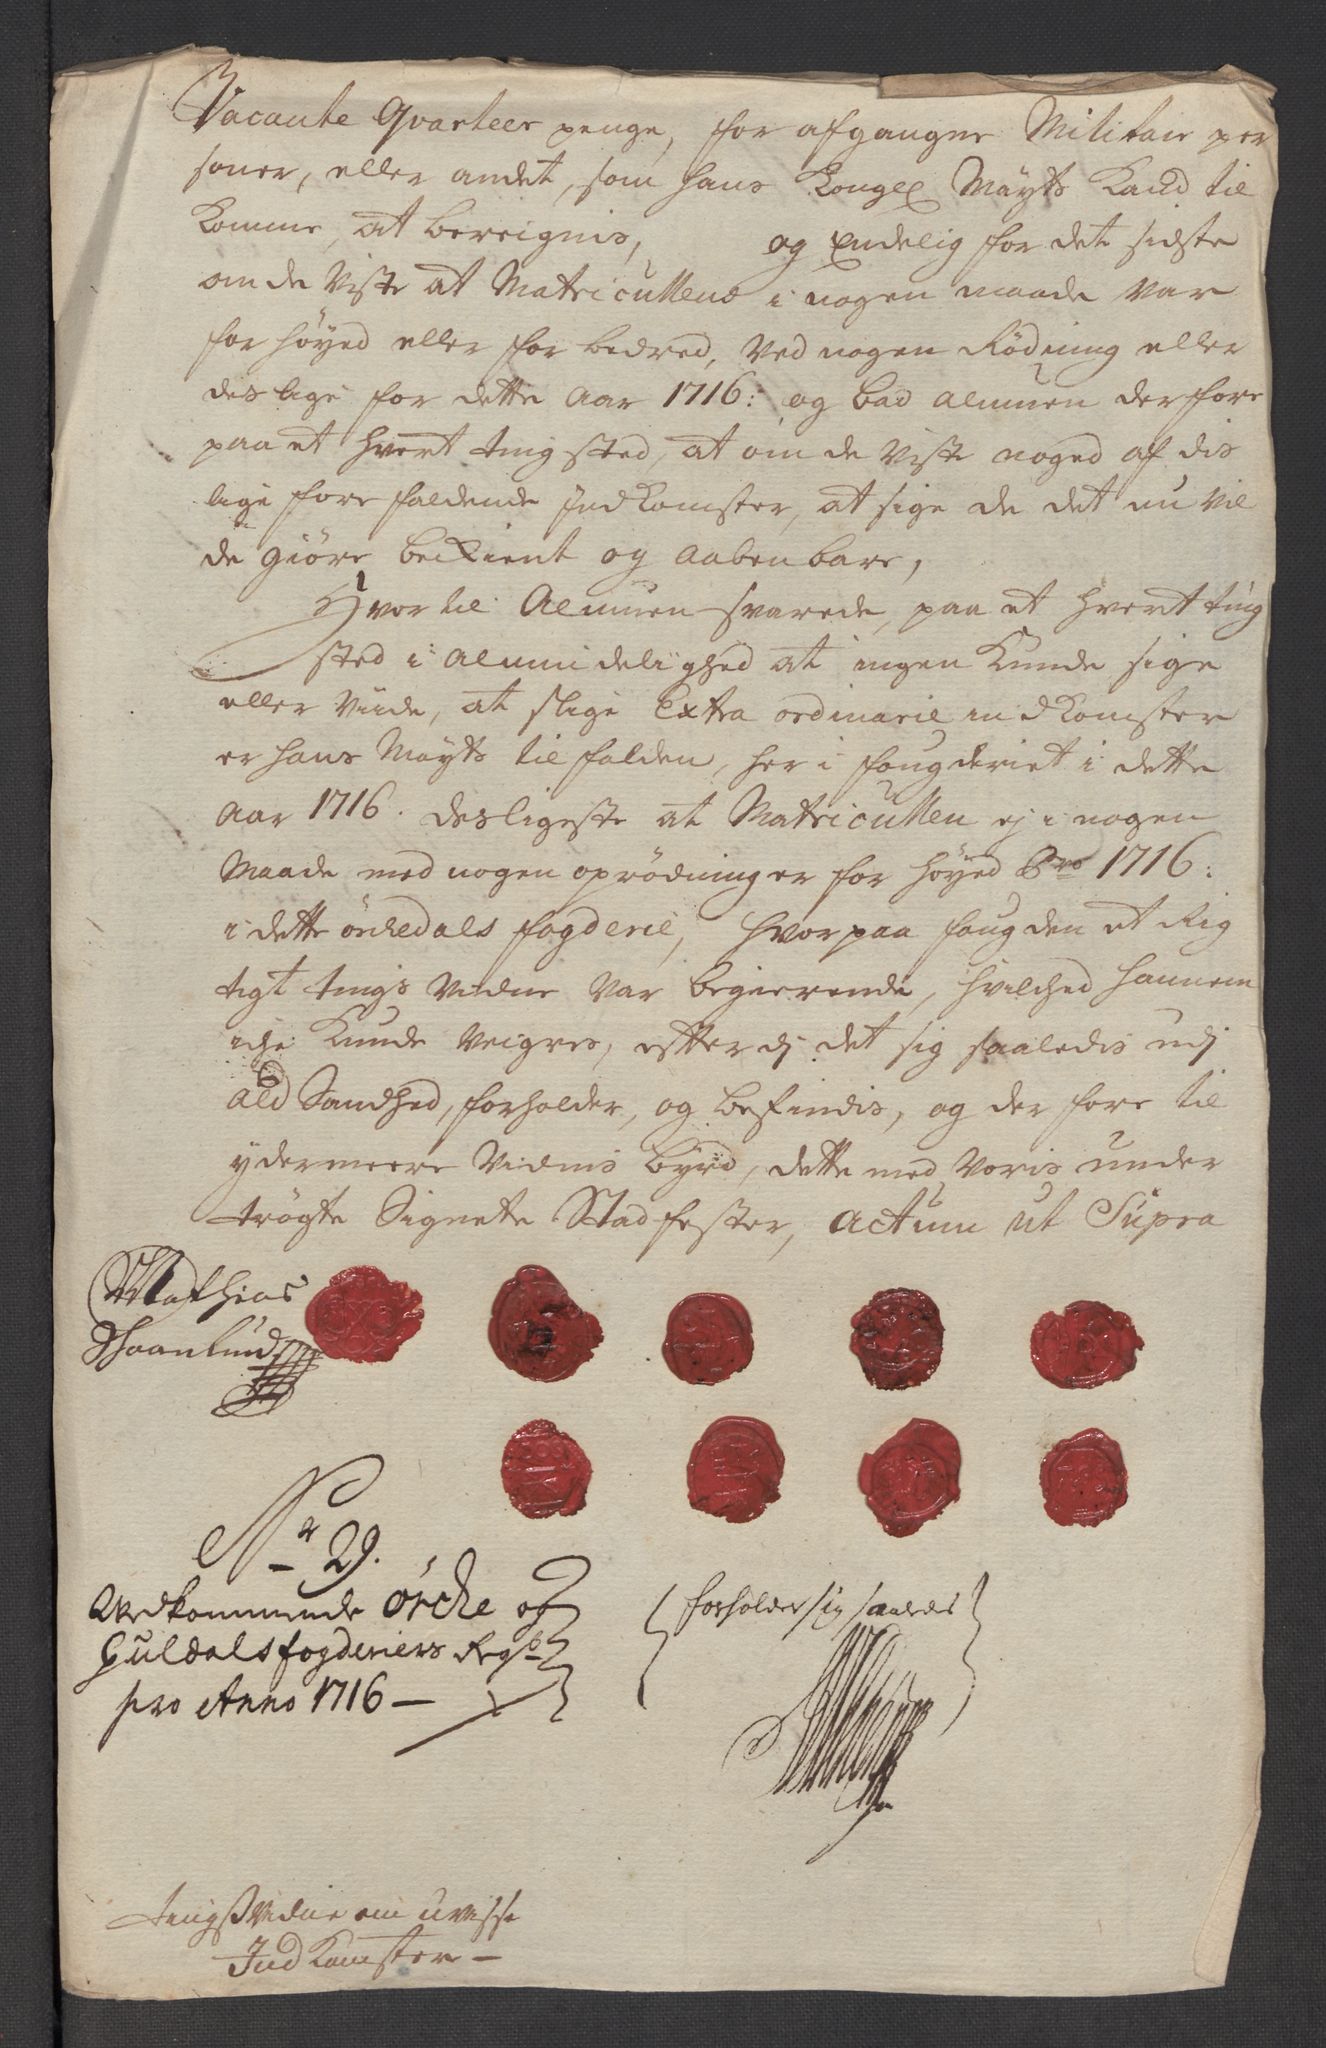 Vacante Qvarteer penge, for afgangne Militair per
soner, eller andet, som hans Kongel Mayts Kand til
komme, at bereignis, og Endelig for det sidste
om de Viste at Matricullens i nogen maade var
for höyed eller for bedred, Ved nogen Rödning eller
deslige for dette Aar 1716: og bad Almuen derfore
paa et hvert tingsted, at om de Viste noged af dis
lige fore faldende Indkomster, at sige de det nu Vil
de giöre bekient og aabenbare,
Hvortil Almuen svarede, paa et hvert ting
sted i Almindelighed at ingen Kunde sige
eller Viide, at slige Extra ordinarie indkomster
er hans Mayts tilfalden, her i fougderiet i dette
Aar 1716. desligeste at Matricullen ej i nogen
Maade med nogen oprödninger for höyed Pro 1716:
i dette örchedals fogderie, hvorpaa fougden et Rig
tigt tings Vidne Var begierende, hvilched hannem
iche Kunde Veigres, efterdj det sig saaledis udj
ald Sandhed, forholder, og befindis, og der fore til
ydermeere Vidnis byrd, dette med Voris under
trögte Signete Stadfester, Actum ut Supra
Mathias
Schaanlund
No 29.
Vedkommende örche og
Guldals fogderiers Regsk
pro Anno 1716 —
forholder sig saaledis
tingsVidne om uvisse
Ind Komster —